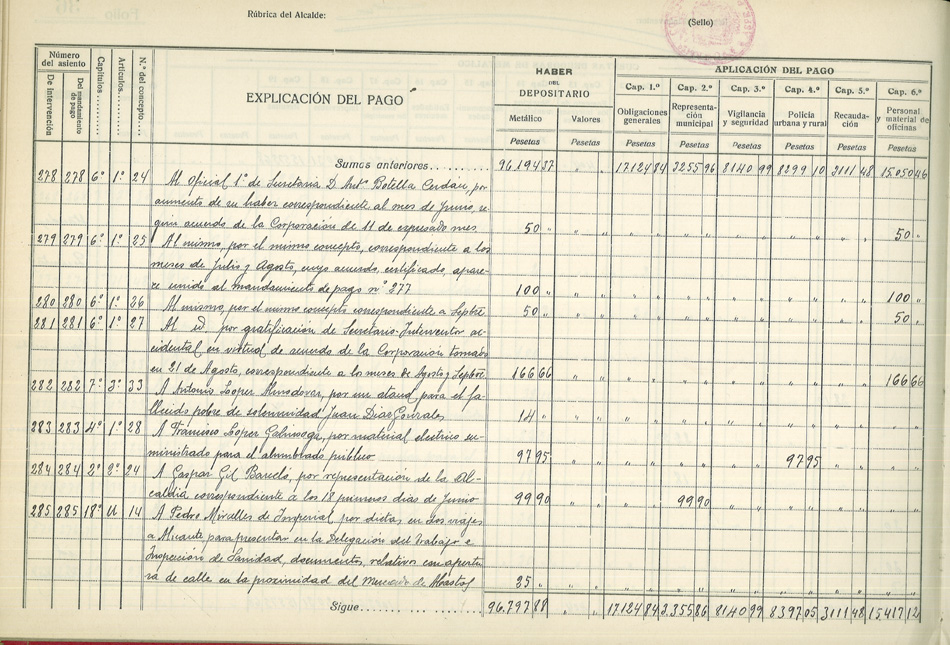 Rúbrica del Alcalde:
(Sello)
Número del asiento
De Intervención
Del mandamiento de pago
Capítulos
Artículos
N.º del concepto
EXPLICACIÓN DEL PAGO
HABER
DEL
DEPOSITARIO
Metálico
Valores
Pesetas
Pesetas
APLICACIÓN DEL PAGO
Cap. 1.º Cap. 2.º Cap. 3.º Cap. 4.º Cap. 5.º Cap. 6.º
Obligaciones generales
Representación municipal
Vigilancia y seguridad
Policía urbana y rural
Recaudación
Personal y material de oficinas
Pesetas Pesetas Pesetas Pesetas Pesetas Pesetas
Sumas anteriores 96.194 37 " " 17.124 84 3255 96 8140 99 8299 10 3111 48 15.050 46
278 278 6º 1º 24 Al Oficial 1º de Secretaria D. Antº Botella Cerdán, por
aumento de su haber correspondiente al mes de Junio, se-
gún acuerdo de la Corporación de 11 de expresado mes 50 " 50 "
279 279 6º 1º 25 Al mismo, por el mismo concepto, correspondiente a los
meses de Julio y Agosto, cuyo acuerdo, certificado, apare-
ce unido al mandamiento de pago nº 277 100 " 100 "
280 280 6º 1º 26 Al mismo, por el mismo concepto correspondiente a Sepbre 50 " 50 "
281 281 6º 1º 27 Al id. por gratificación de Secretario-Interventor ac-
cidental en virtud de acuerdo de la Corporación tomado
en 21 de Agosto, correspondiente a los meses de Agosto y Sepbre 166 66 166 66
282 282 7º 3º 33 A Antonio López Almodovar, por un ataud para el fa-
llecido pobre de solemnidad Juan Díaz Gonzales 14 "
283 283 4º 1º 28 A Francisco López, por material electrico su-
ministrado para el alumbrado publico 97 95 97 95
284 284 2º 2º 24 A Gaspar Gil Barceló, por representación de la Al-
caldía correspondiente a los 18 primeros días de Junio 99 90 99 90
285 285 18º U 14 A Pedro Miralles de Imperial por dietas en dos viajes
a Alicante para presentar en la Delegación del Trabajo e
Inspección de Sanidad, documentos, relativos con apertu-
ra de calle en la proximidad del Mercado de Abastos 25 "
Sigue 96.797 88 " " 17.124 84 3.355 86 8140 99 8397 05 3111 48 15417 12